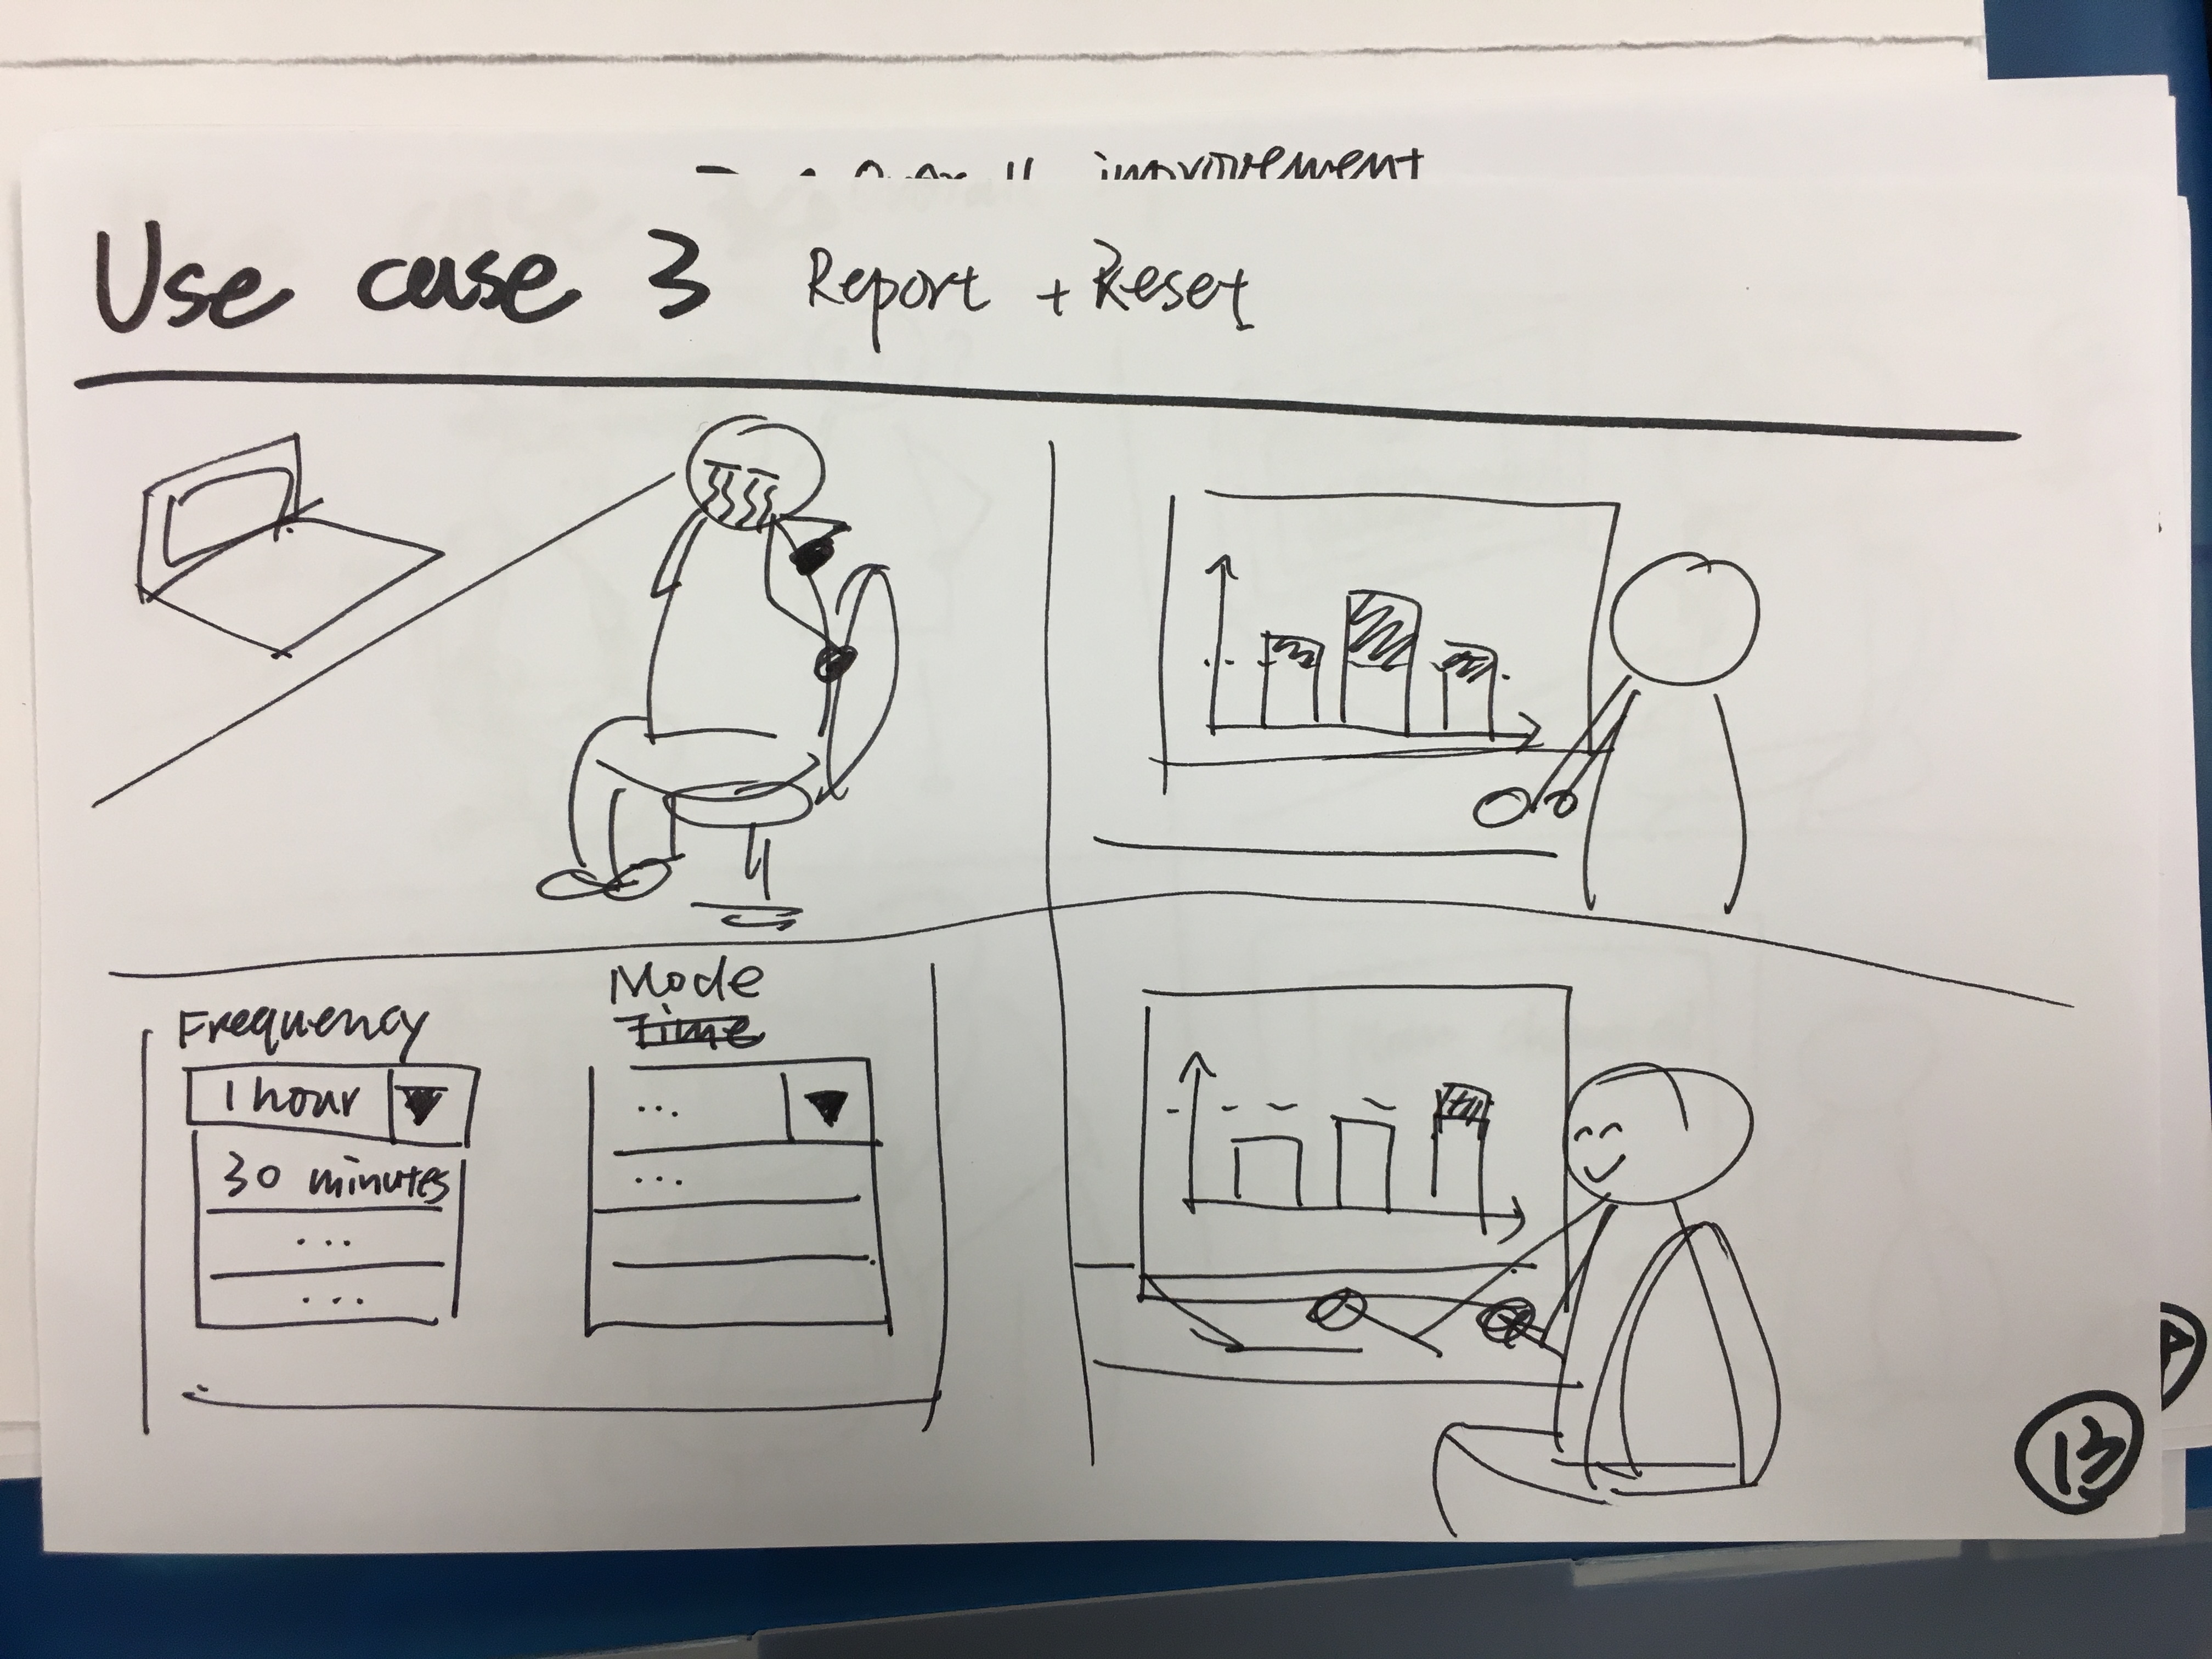 improvement
Use case 3 Report + Reset
Frequency
1 hour
30 minutes
...
...
Mode
Time
...
...
13